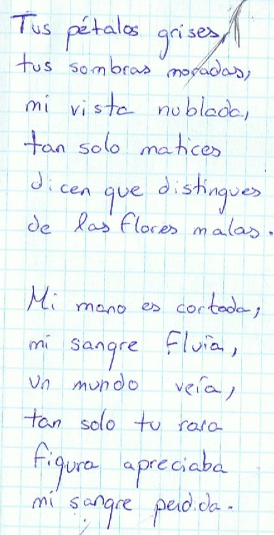 Tus pétalos grises,
tus sombras moradas,
mi vista nublada,
tan solo matices
dicen que distingues
de las flores malas.
Mi mano es cortada,
mi sangre fluía,
un mundo veía,
tan solo tu rara
figura apreciaba
mi sangre perdida.